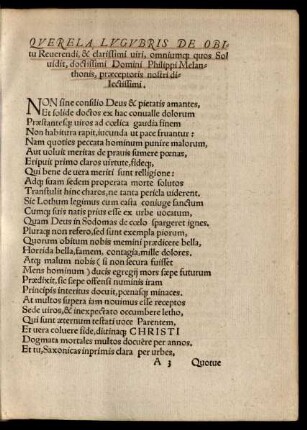 QVERELA LVGVBRIS DE OBI-
tu Reuerendi, & clarissimi uiri, omniumq; quos Sol
uidit, doctissimi Domini Philippi Melan-
thonis, præceptoris nostri di-
lectissimi.
NON sine consilio Deus & pietatis amantes,
Et solide doctos ex hac conualle dolorum
Præstantesq; uiros ad cœlica gaudia sinem
Non habitura rapit, iucunda ut pace fruantur:
Nam quoties peccata hominum punire malorum,
Aut uoluit meritas de prauis sumere pœnas,
Eripuit primo claros uirtute, fideq;,
Qui bene de uera meriti sunt relligione:
Adq; suam sedem properata morte solutos
Transtulit hinc charos, ne tanta pericla uiderent.
Sic Lothum legimus cum casta coniuge sanctum
Cumq; suis natis prius esse ex urbe uocatum,
Quam Deus in Sodomas de cœlo spargeret ignes,
Pluraq; non refero, sed sunt exempla piorum,
Quorum obitum nobis memini prædicere bella,
Horrida bella, famem, contagia, mille dolores.
Atq; malum nobis (si non secura fuisset
Mens hominum) ducis egregij mors sæpe futurum
Prædixit, sic sæpe offensi numinis iram
Principis interitus docuit, pœnasq; minaces.
At multos supera iam nouimus esse receptos
Sede uiros, & inexpectato occumbere letho,
Qui sunt æternum testati uoce Parentem,
Et uera coluere fide, diuinaq; CHRISTI
Dogmata mortales multos docuêre per annos,
Et tu, Saxonicas inprimis clara per urbes,
A 3 Quotue